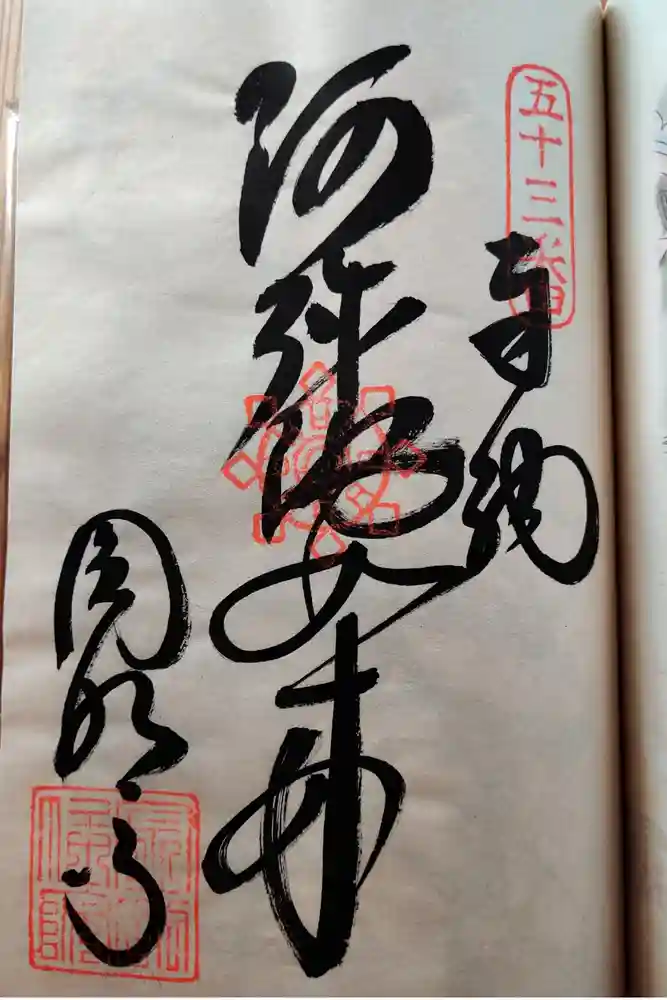 五十三番
奉納
阿弥陀如来
圓明寺